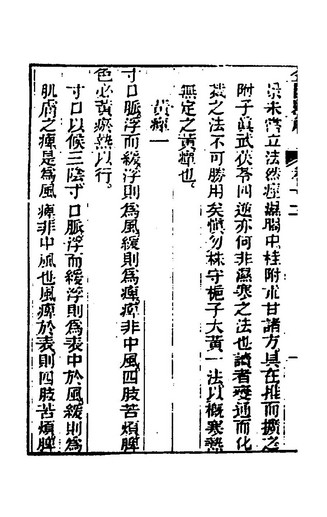 景未嘗立法然痙濕暍中桂附朮甘諸方具在推而擴之
附子眞武茯苓四逆亦何非濕寒之法也讀者變通而化
裁之法不可勝用矣愼勿株守梔子大黃一法以概寒熱
無定之黃癉也
黃癉一
寸口脈浮而緩浮則為風緩則為痺痺非中風四肢苦煩脾
色必黃瘀熱以行。
寸口以候三陰寸口脈浮而緩浮則為表中於風緩則為
肌膚之痺是為風痺非中風也風痺於表則四肢苦煩脾